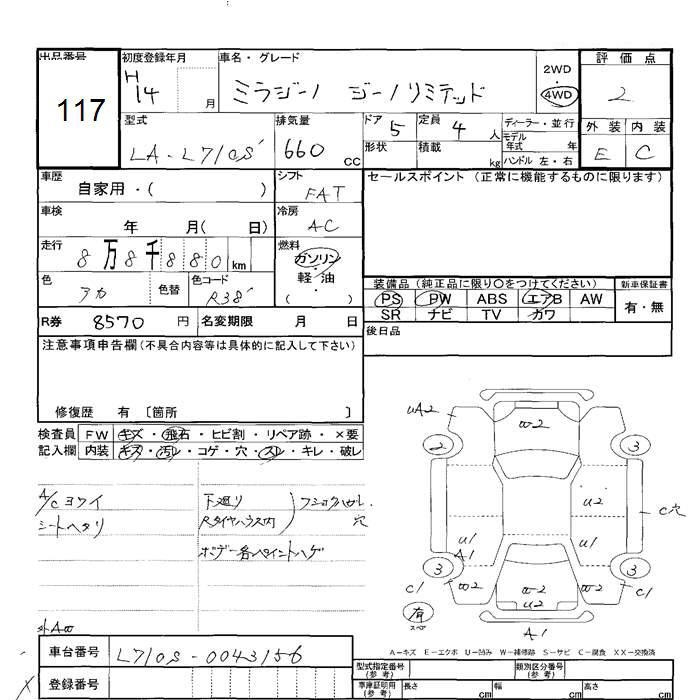 出品番号 初度登録年月 車名・グレード 2WD 評価点
117 H14 月 ミラジーノ ジーノリミテッド 4WD 2
型式 排気量 ドア 5 定員 4 人 ディーラー・並行 外装 内装
LA-L710S 660 cc 形状 積載 kg モデル年式 年 E C
ハンドル 左・右
車歴 自家用・( ) シフト FAT セールスポイント (正常に機能するものに限ります)
車検 年 月( 日) 冷房 AC
走行 8万8千880 km 燃料 ガソリン
軽・油
( ・ )
色 アカ 色替 色コード R38 装備品 (純正品に限り○をつけてください) 新車保証書
PS PW ABS エアB AW 有・無
R券 8570 円 名変期限 月 日 SR ナビ TV カワ
後日品
注意事項申告欄(不具合内容等は具体的に記入して下さい)
修復歴 有 〔箇所 〕
検査員 FW キズ・飛石・ヒビ割・リペア跡・×要
記入欄 内装 キズ・汚レ・コゲ・穴・スレ・キレ・破レ
A/C ヨワイ 下廻り
シートヘタリ Rタイヤハウス内 穴
ボデー各ペイントハゲ
uA2 w-2
2 3
u2 C穴
u1 A1 u1
3 3
C1 w2 w-2 u2 w2 C1
有 スペア
A1
外Aw
A-キズ E-エクボ U-凹み W-補修跡 S-サビ C-腐食 XX-交換済
車台番号 L710S-0043156
型式指定番号 (参考) 類別区分番号 (参考)
登録番号
車庫証明用 (参考) 長さ cm 幅 cm 高さ cm